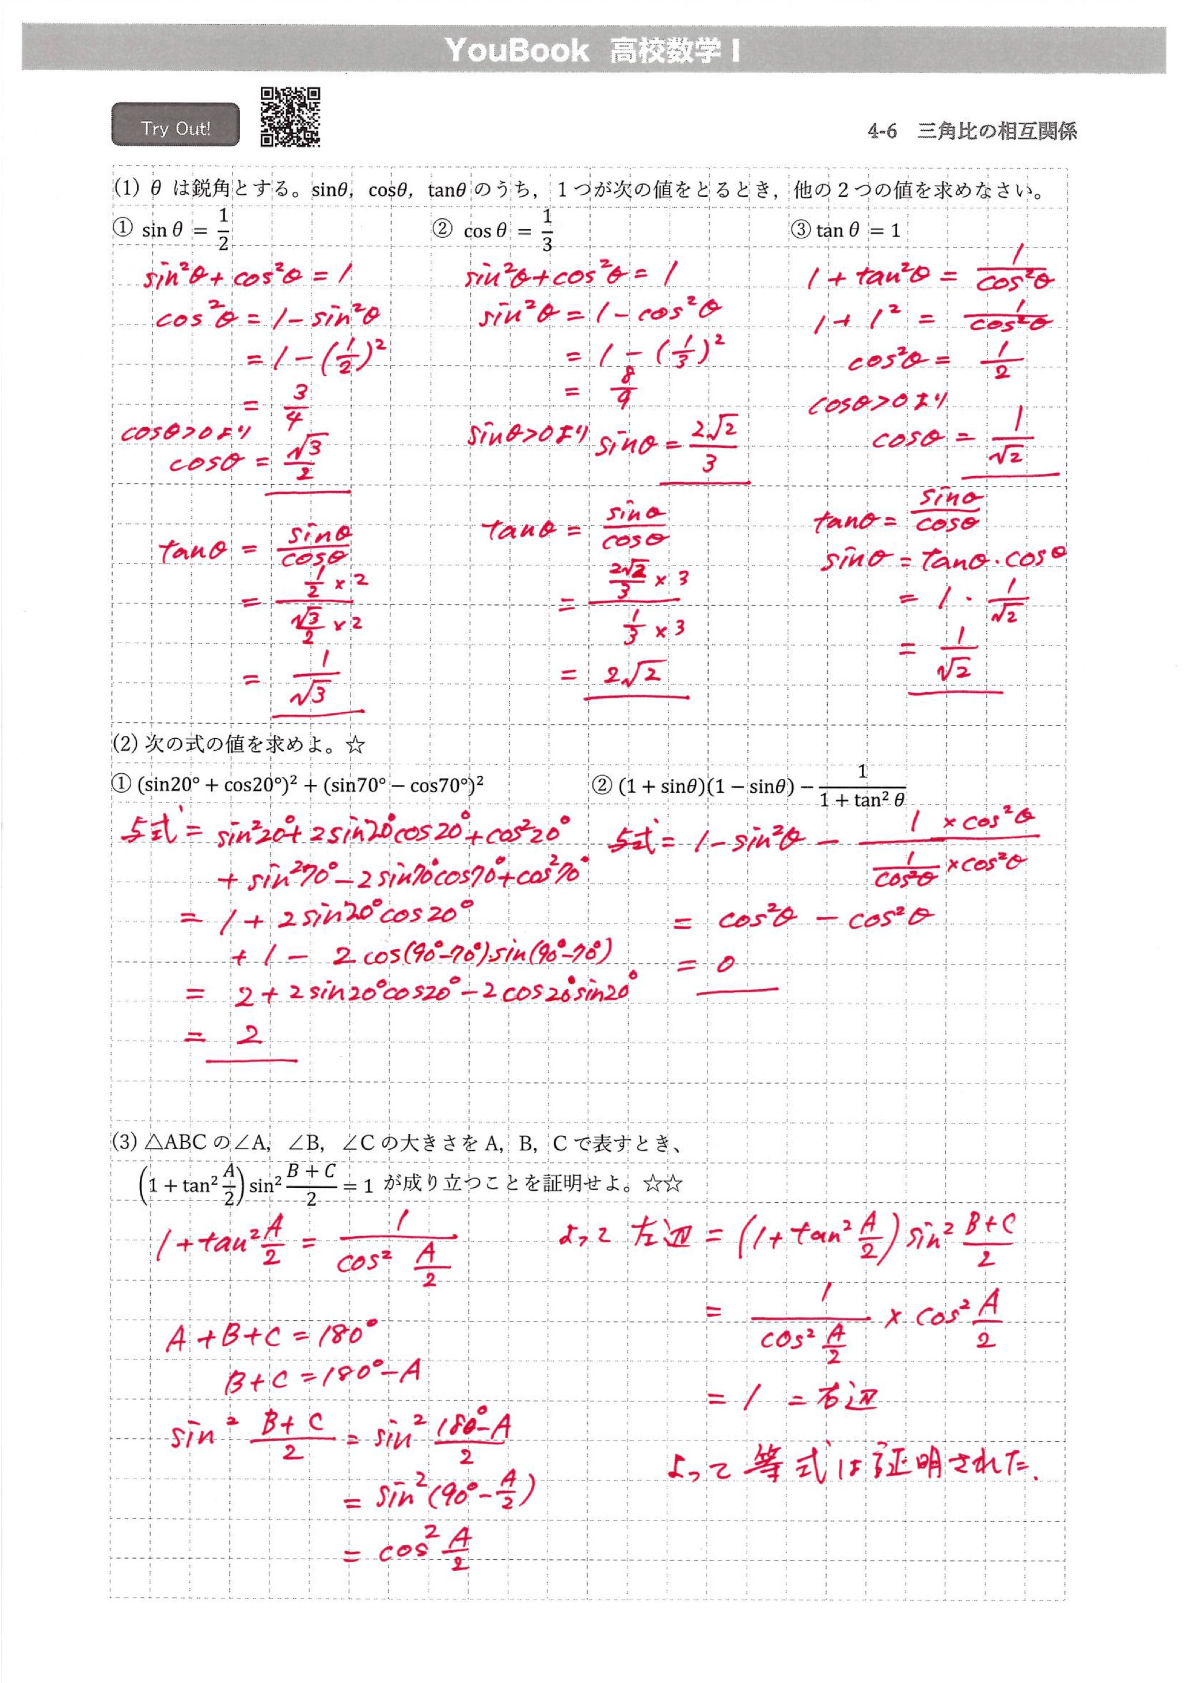 YouBook 高校数学 I
Try Out!
4-6 三角比の相互関係
(1) θ は鋭角とする。sinθ, cosθ, tanθ のうち, 1つが次の値をとるとき, 他の2つの値を求めなさい。
① sin θ = 1/2
sin²θ + cos²θ = 1
cos²θ = 1 - sin²θ
= 1 - (1/2)²
= 3/4
cosθ>0より
cosθ = √3/2
tanθ = sinθ/cosθ
= (1/2 × 2)/(√3/2 × 2)
= 1/√3
② cos θ = 1/3
sin²θ + cos²θ = 1
sin²θ = 1 - cos²θ
= 1 - (1/3)²
= 8/9
sinθ>0より sinθ = 2√2/3
tanθ = sinθ/cosθ
= (2√2/3 × 3)/(1/3 × 3)
= 2√2
③ tan θ = 1
1 + tan²θ = 1/cos²θ
1 + 1² = 1/cos²θ
cos²θ = 1/2
cosθ>0より
cosθ = 1/√2
tanθ = sinθ/cosθ
sinθ = tanθ・cosθ
= 1・1/√2
= 1/√2
(2) 次の式の値を求めよ。☆
① (sin20° + cos20°)² + (sin70° − cos70°)²
与式 = sin²20° + 2sin20°cos20° + cos²20°
+ sin²70° − 2sin70°cos70° + cos²70°
= 1 + 2sin20°cos20°
+ 1 − 2cos(90°−70°)sin(90°−70°)
= 2 + 2sin20°cos20° − 2cos20°sin20°
= 2
② (1 + sinθ)(1 − sinθ) − 1/(1 + tan² θ)
与式 = 1 − sin²θ − (1 × cos²θ)/(1/cos²θ × cos²θ)
= cos²θ − cos²θ
= 0
(3) △ABC の∠A, ∠B, ∠C の大きさを A, B, C で表すとき、
(1 + tan² A/2) sin² (B + C)/2 = 1 が成り立つことを証明せよ。☆☆
1 + tan² A/2 = 1/(cos² A/2)
A + B + C = 180°
B + C = 180° − A
sin² (B + C)/2 = sin² (180° − A)/2
= sin² (90° − A/2)
= cos² A/2
よって 左辺 = (1 + tan² A/2) sin² (B + C)/2
= 1/(cos² A/2) × cos² A/2
= 1 = 右辺
よって等式は証明された.